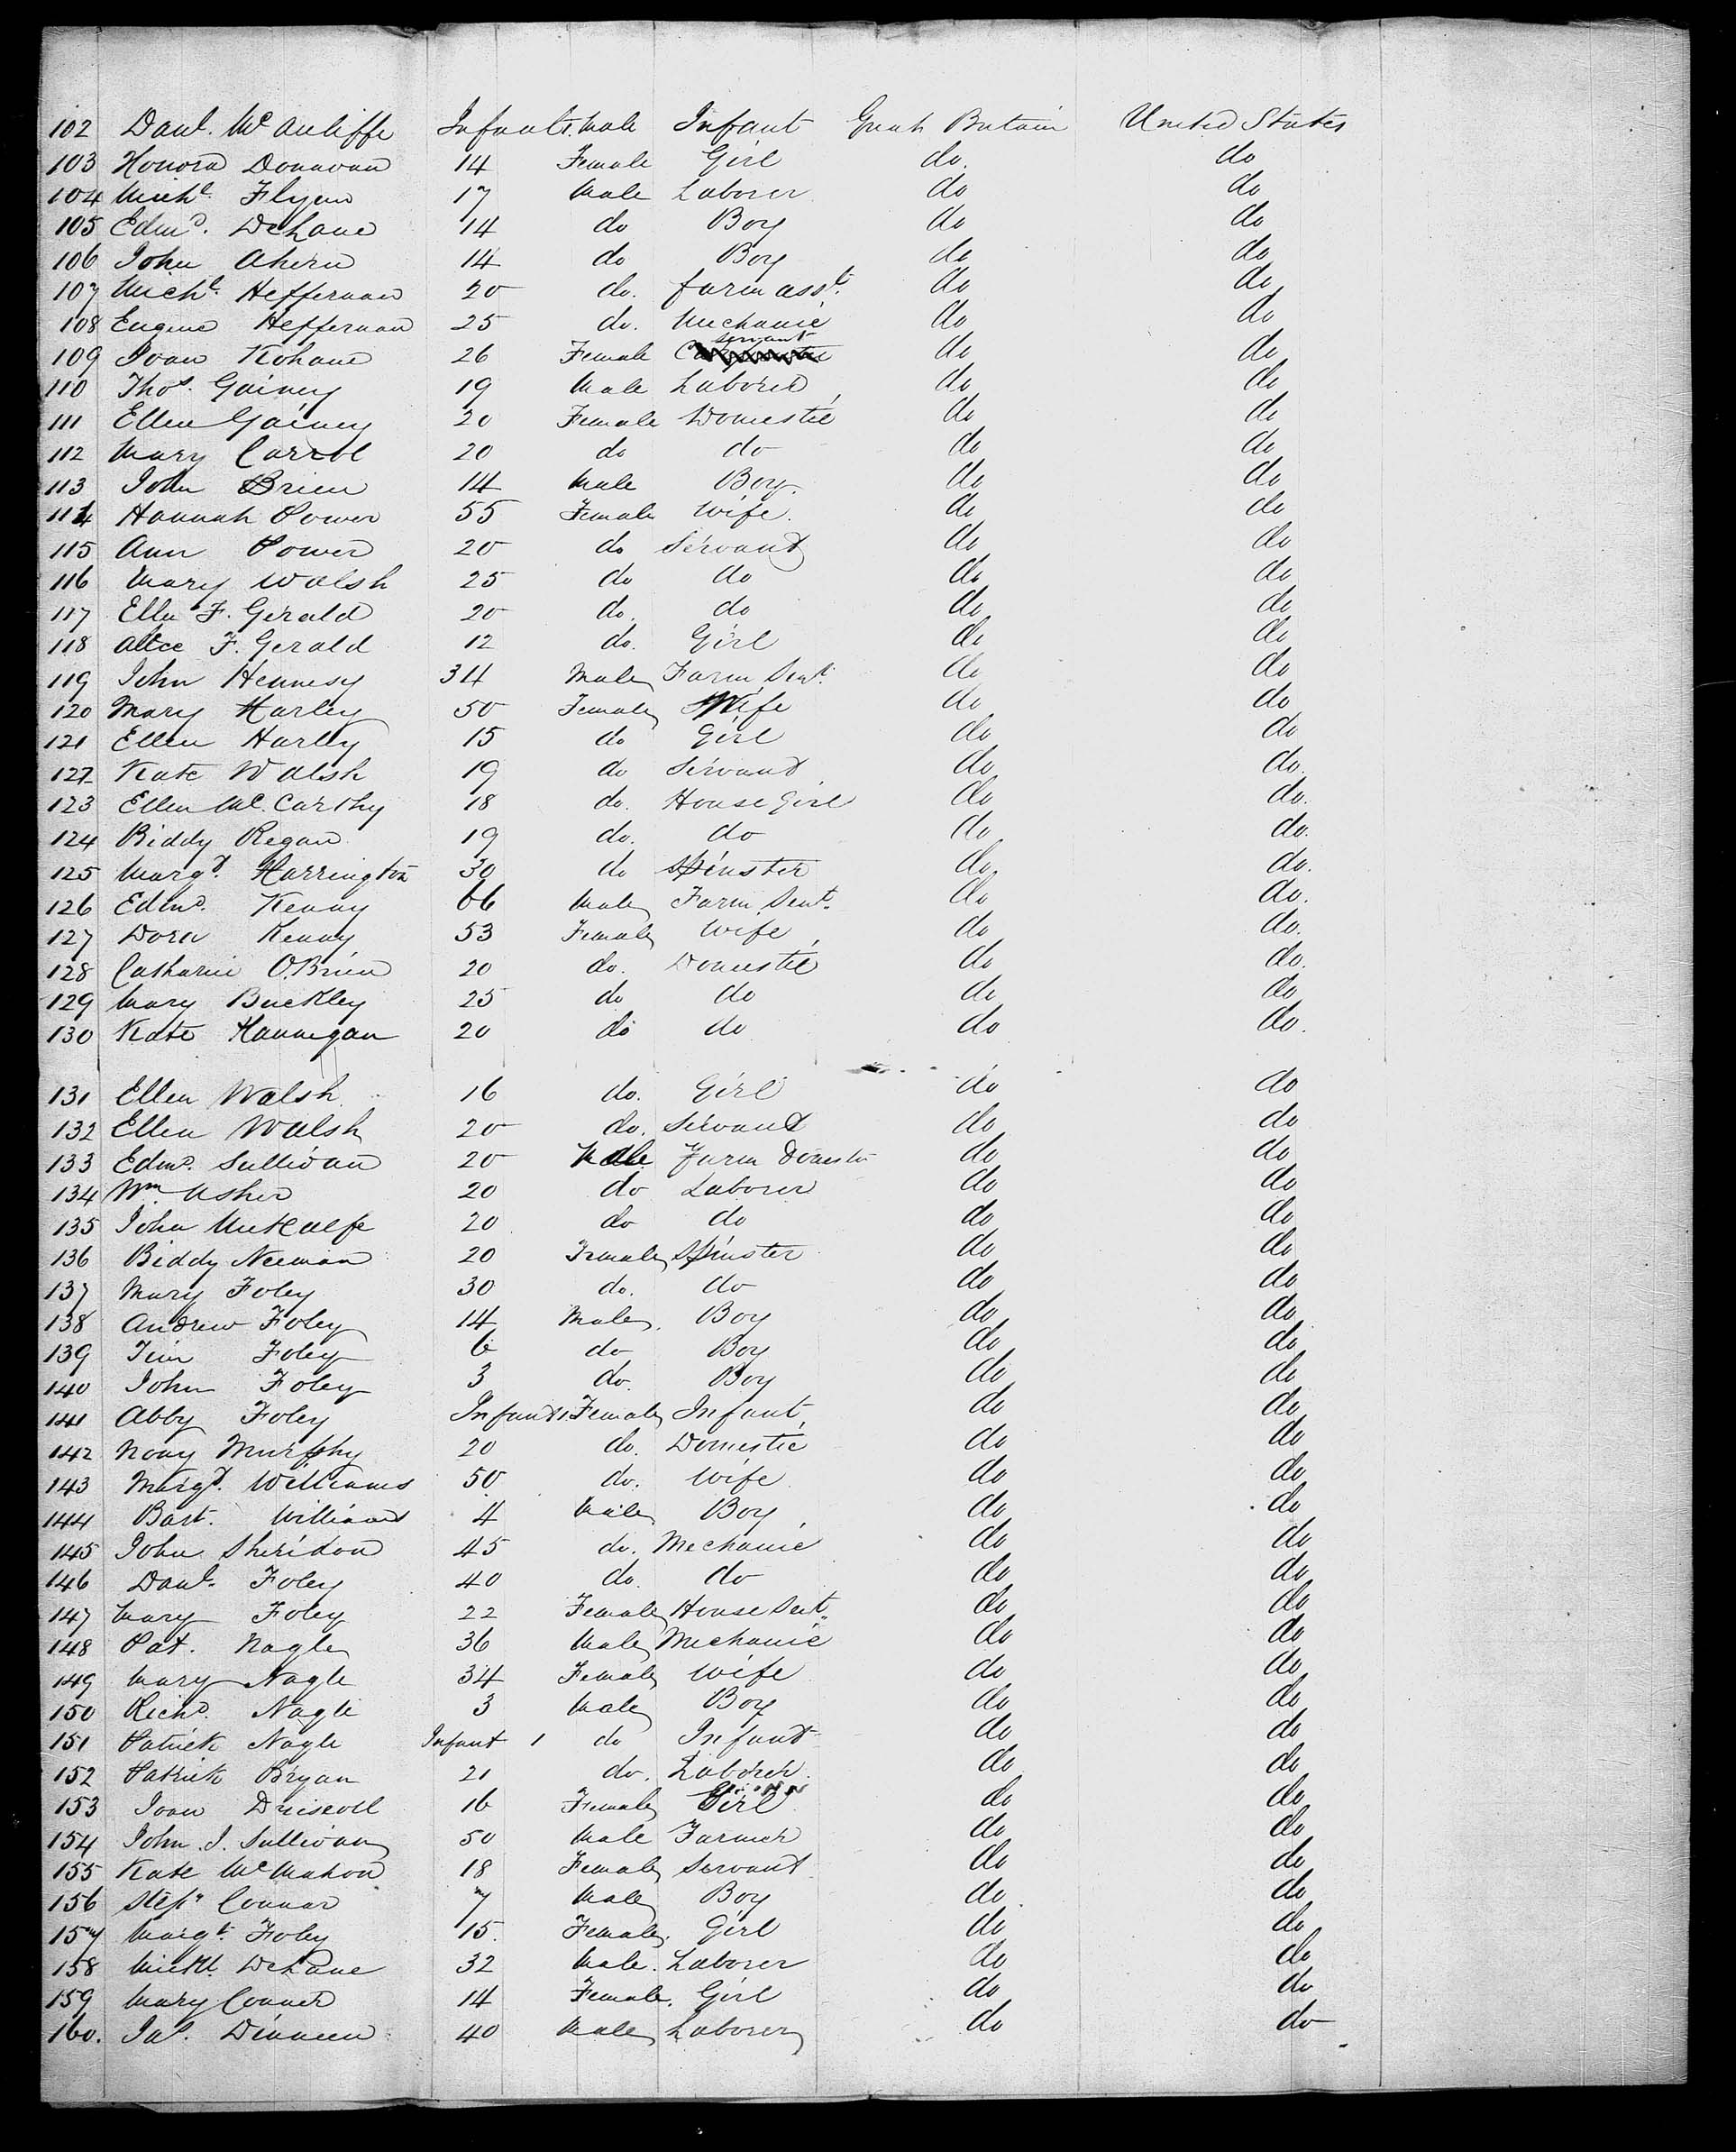 102 Danl. McAuliffe Infant 1. Male Infant Great Britain United States
103 Honora Donavan 14 Female Girl do. do
104 Michl. Flynn 17 Male Laborer do do
105 Edmd. DeLane 14 do Boy do do
106 John Ahern 14 do Boy do do
107 Michl. Heffernan 20 do. farm asst. do do
108 Eugene Heffernan 25 do. Mechanic do do
109 Joan Kohane 26 Female servant do do
110 Thos. Gainey 19 Male Laborer do do
111 Ellen Gainey 20 Female Domestic do do
112 Mary Carrol 20 do do do do
113 John Brien 14 Male Boy. do do
114 Hannah Power 55 Female Wife. do do
115 Ann Power 20 do Servant do do
116 Mary Walsh 25 do do do do
117 Ellen F. Gerald 20 do. do do do
118 Alice F. Gerald 12 do. Girl do do
119 John Hennesy 34 Male Farm Servt. do do
120 Mary Harley 50 Female Wife do do
121 Ellen Harley 15 do Girl do do
122 Kate Walsh 19 do Servant do do.
123 Ellen McCarthy 18 do. House Girl do do.
124 Biddy Regan 19 do. do do do.
125 Margt. Harrington 30 do Spinster do. do.
126 Edmd. Kenny 66 Male Farm Servt. do do.
127 Dora Kenny 53 Female Wife do do.
128 Catharine O.Brien 20 do. Domestic do do.
129 Mary Buckley 25 do do do do
130 Kate Hannegan 20 do do do do.
131 Ellen Walsh 16 do. Girl do do
132 Ellen Walsh 20 do. Servant do do
133 Edmd. Sullivan 20 Male Farm Domestic do do
134 Wm Usher 20 do Laborer do do
135 John Metcalfe 20 do do do do
136 Biddy Neenan 20 Female Spinster do do
137 Mary Foley 30 do. do do do
138 Andrew Foley 14 Male. Boy do do
139 Tim Foley 6 do Boy do do
140 John Foley 3 do. Boy do do
141 Abby Foley Infant 1. Female Infant do do
142 Nony Murphy 20 do. Domestic do do
143 Margt. Williams 50 do. Wife do do
144 Bart. Williams 4 Male Boy do do
145 John Sheridon 45 do. Mechanic do do
146 Danl. Foley 40 do. do do do
147 Mary Foley 22 Female House Servt. do do
148 Pat. Nagle 36 Male Mechanic do do
149 Mary Nagle 34 Female Wife do do
150 Richd. Nagle 3 Male Boy do do
151 Patrick Nagle Infant 1 do Infant do do
152 Patrick Bryan 21 do. Laborer do do
153 Joan Driscoll 16 Female Girl do do
154 John J. Sullivan 50 Male Farmer do do
155 Kate McMahon 18 Female Servant do do
156 Stepn Connor 7 Male Boy do do
157 Margt. Foley 15. Female. Girl do do
158 Michl. DeLane 32 Male. Laborer do do
159 Mary Conner 14 Female. Girl do do
160. Jas. Dinneen 40 Male Laborer do do